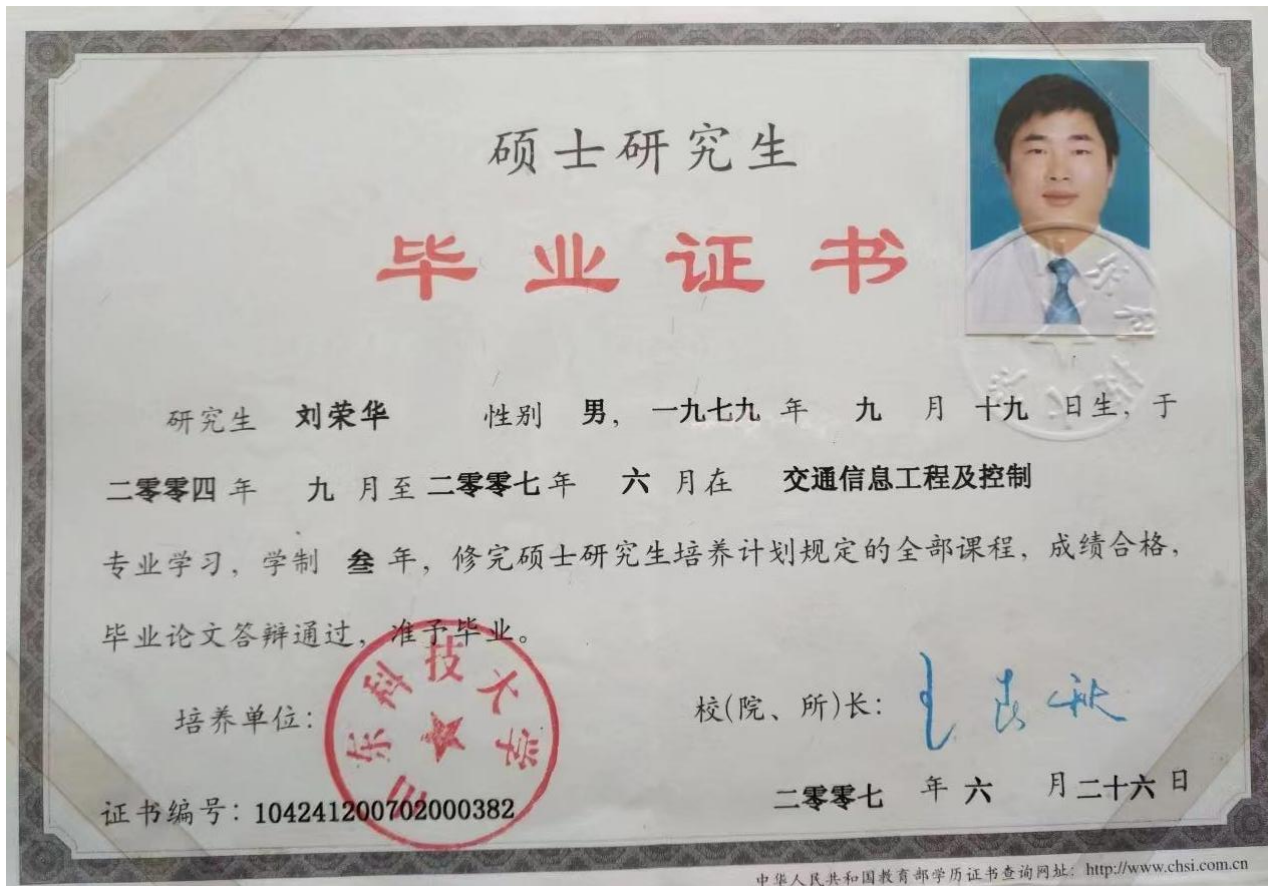 硕士研究生
毕业证书
研究生 刘荣华 性别 男，一九七九 年 九 月 十九 日生，于
二零零四 年 九 月至 二零零七 年 六 月在 交通信息工程及控制
专业学习，学制 叁 年，修完硕士研究生培养计划规定的全部课程，成绩合格，
毕业论文答辩通过，准予毕业。
山东科技大学
培养单位： 校(院、所)长：
二零零七 年 六 月 二十六 日
证书编号：104241200702000382
中华人民共和国教育部学历证书查询网址：http://www.chsi.com.cn